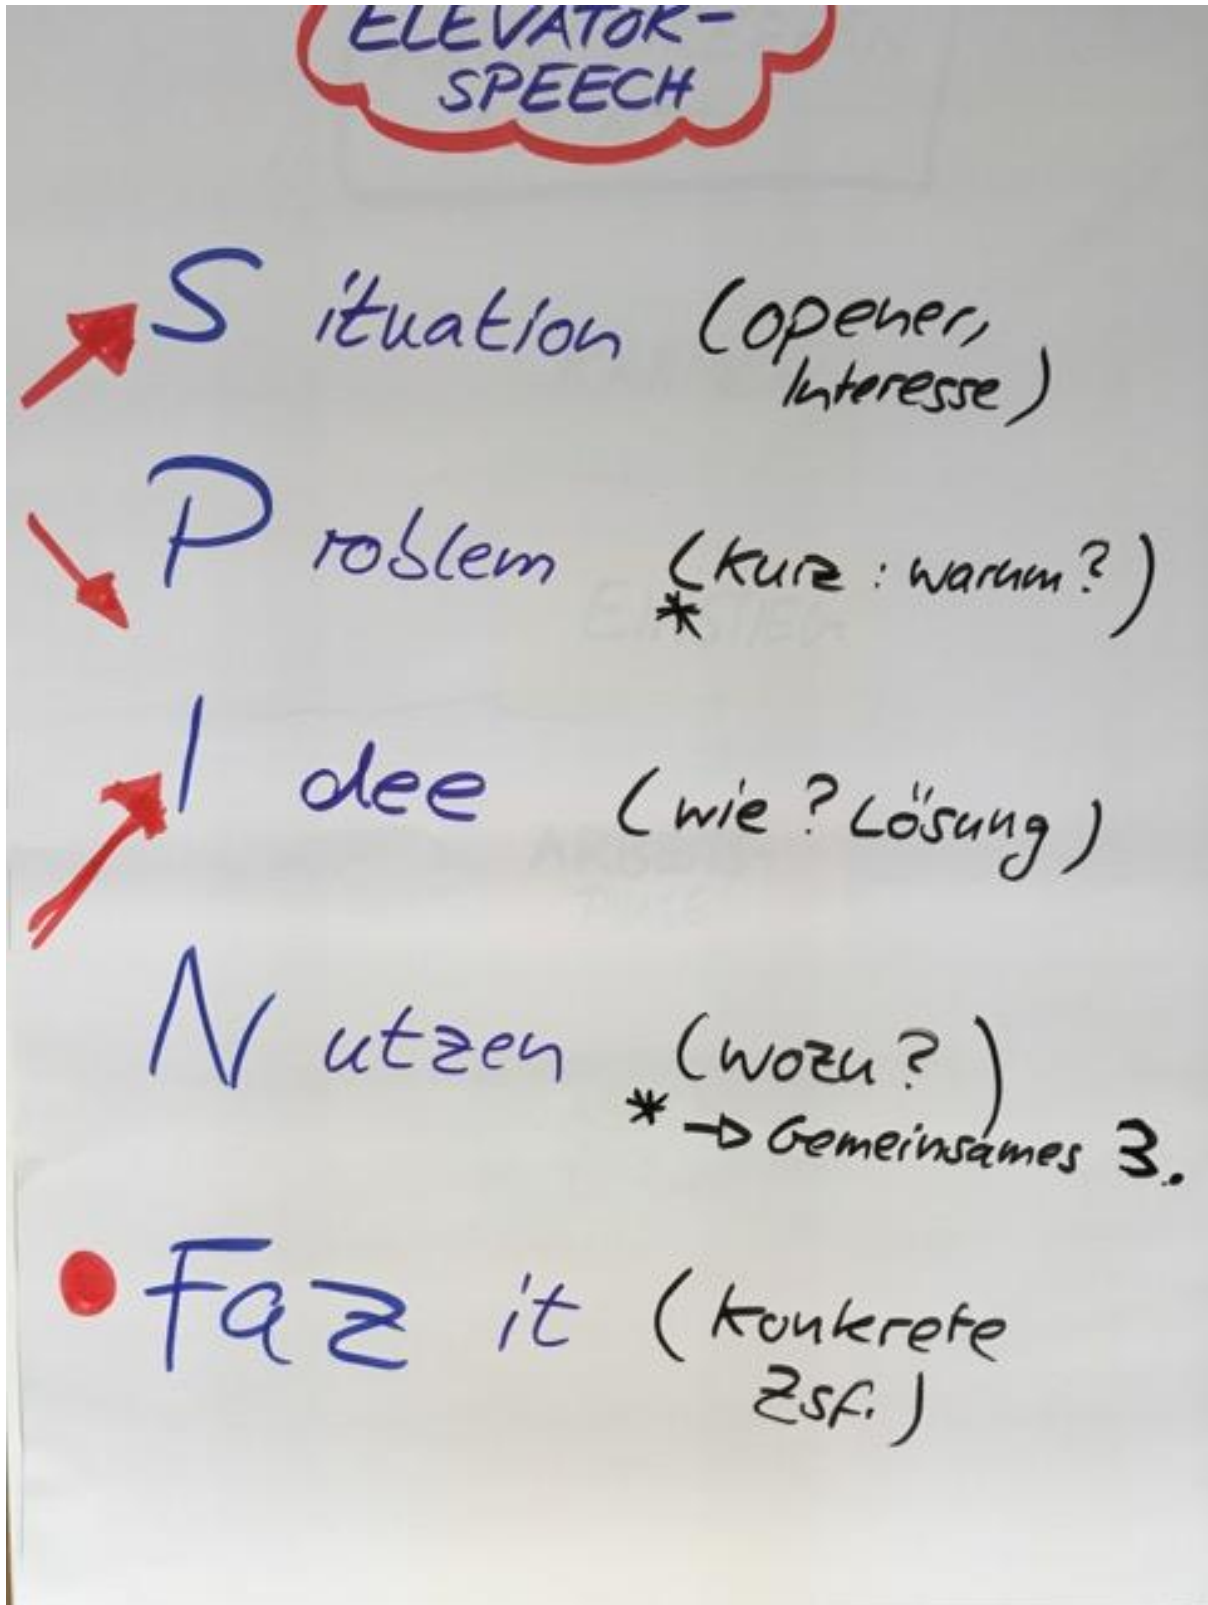 ELEVATOR-
SPEECH
Situation (opener,
Interesse)
Problem (kurz: warum?)
*
Idee (wie? Lösung)
Nutzen (wozu?)
* → Gemeinsames 3.
Fazit (konkrete
Zsf.)
EINSTIEG